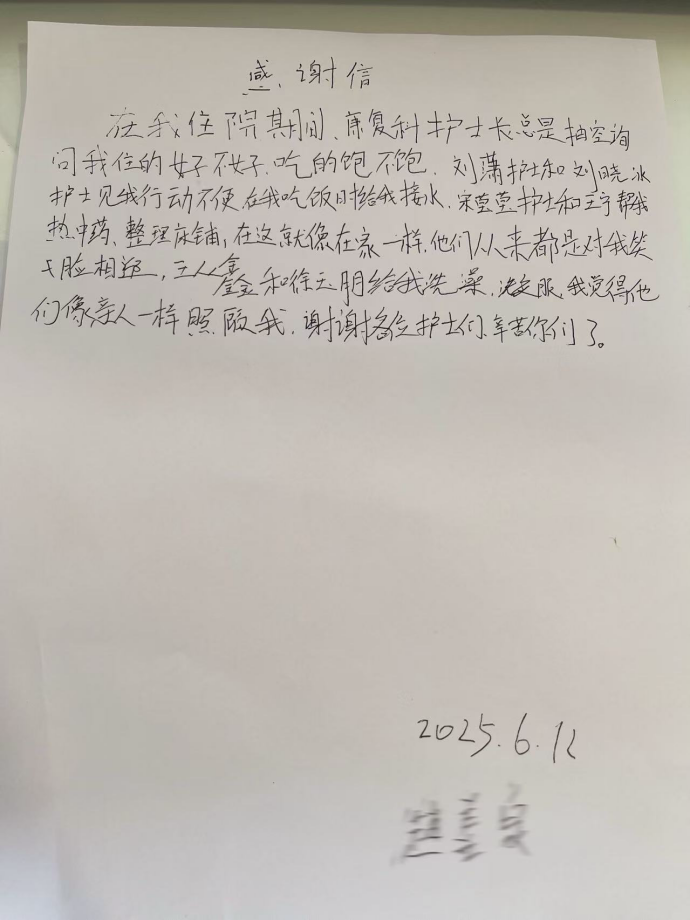 感谢信
在我住院期间、康复科护士长总是抽空询
问我住的好不好、吃的饱不饱、刘萍护士和刘晓冰
护士见我行动不便、在我吃饭时给我接水、宋莹莹护士和王宁帮我
热中药、整理床铺、在这就像在家一样、他们从来都是对我笑
脸相迎,王
鑫和徐玉朋给我洗澡、洗衣服、我觉得他
们像亲人一样照顾我、谢谢各位护士们、辛苦你们了。
2025.6.12